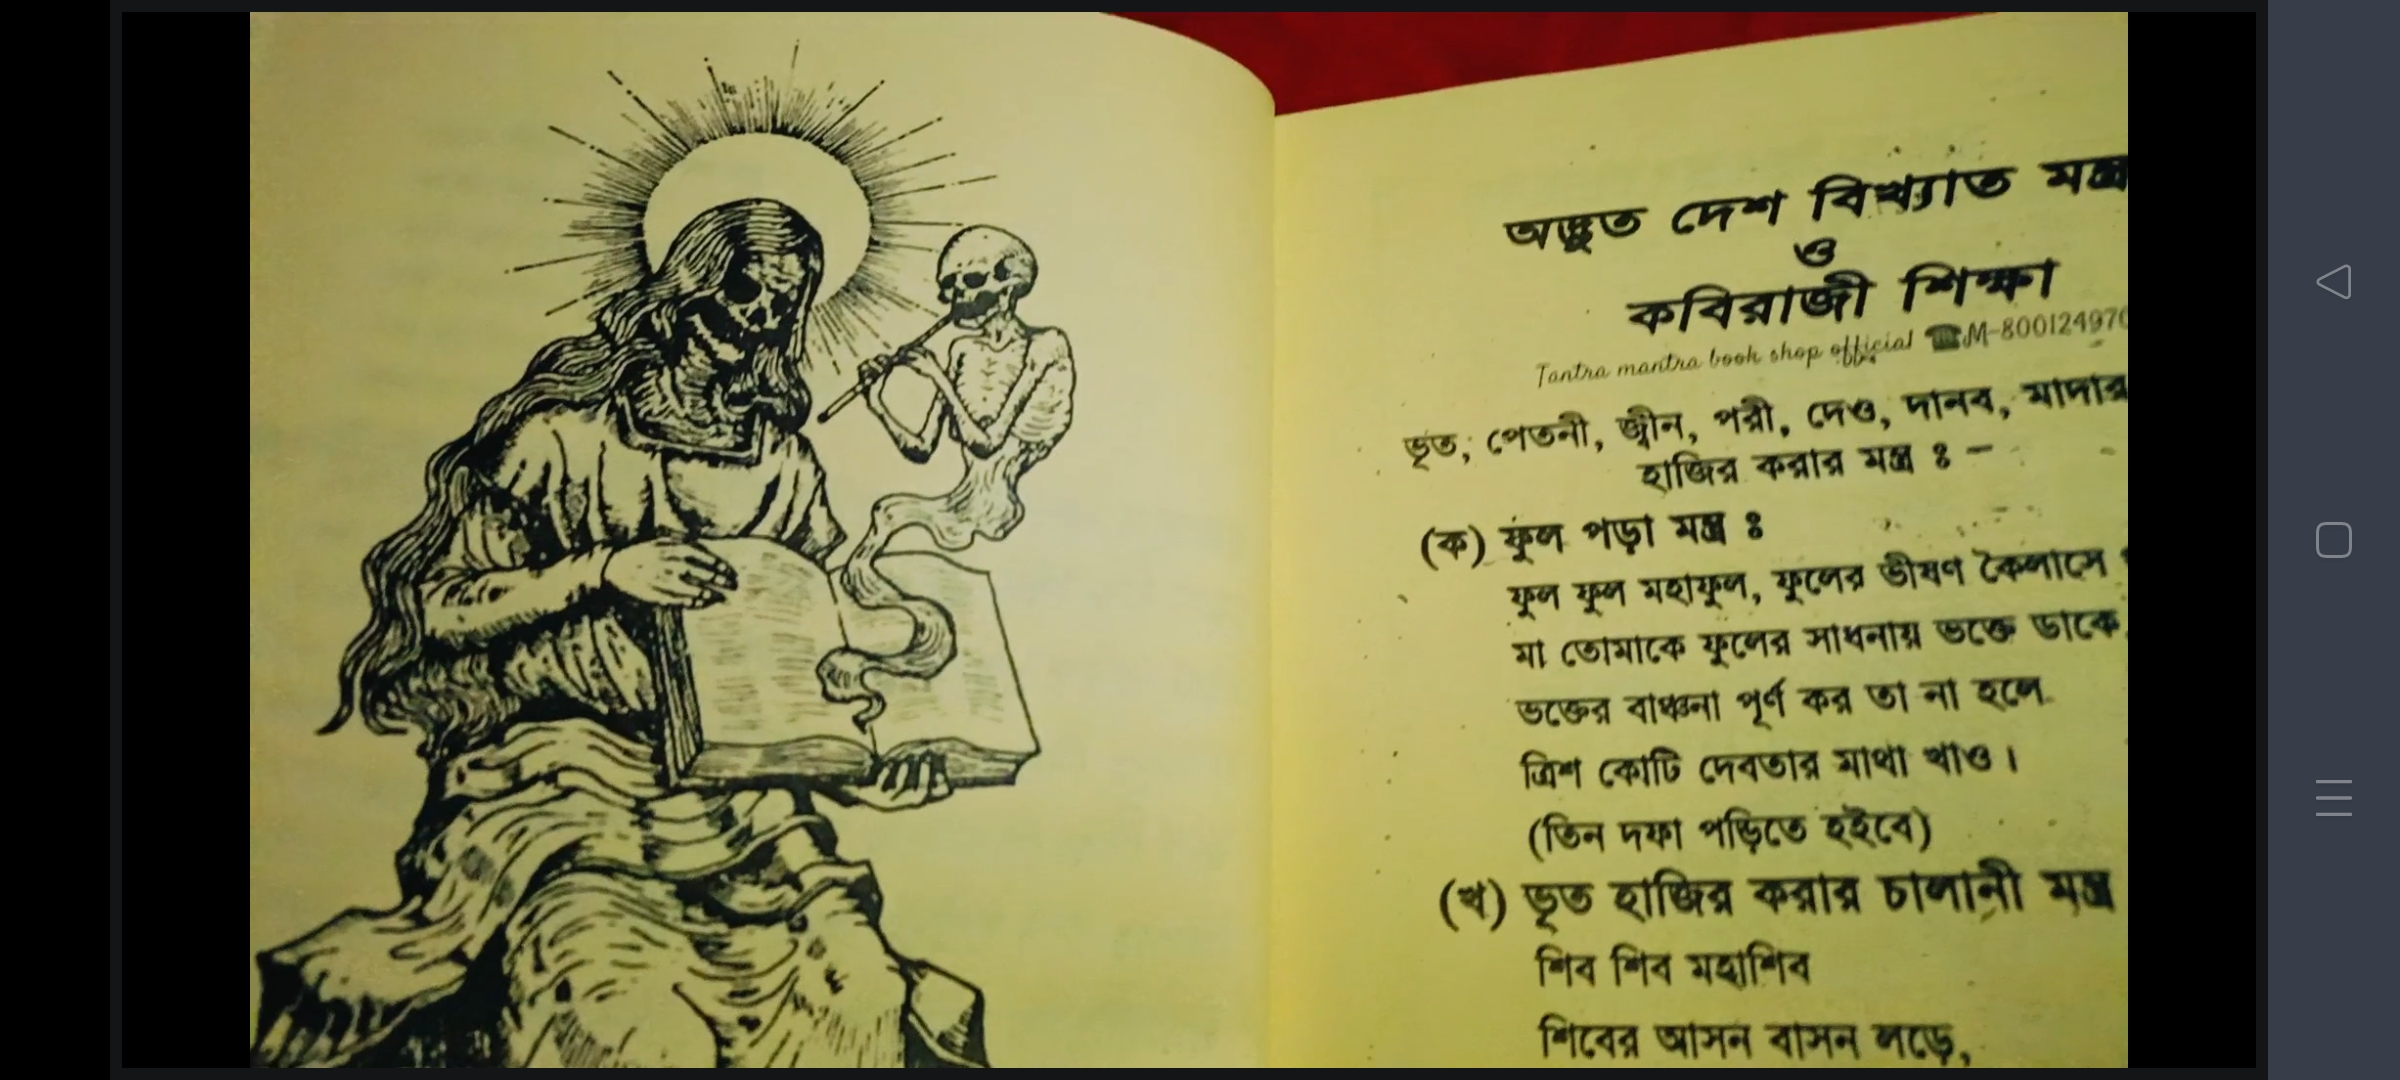 অদ্ভুত দেশ বিখ্যাত মন্ত্র
ও
কবিরাজী শিক্ষা
Tantra mantra book shop official ☎M-80012497
ভূত, পেতনী, জ্বীন, পরী, দেও, দানব, মাদার
হাজির করার মন্ত্র ঃ –
(ক) ফুল পড়া মন্ত্র ঃ
ফুল ফুল মহাফুল, ফুলের ভীষণ কৈলাসে
মা তোমাকে ফুলের সাধনায় ভক্তে ডাকে
ভক্তের বাঞ্চনা পূর্ণ কর তা না হলে
ত্রিশ কোটি দেবতার মাথা খাও।
(তিন দফা পড়িতে হইবে)
(খ) ভূত হাজির করার চালানী মন্ত্র
শিব শিব মহাশিব
শিবের আসন বাসন লড়ে,